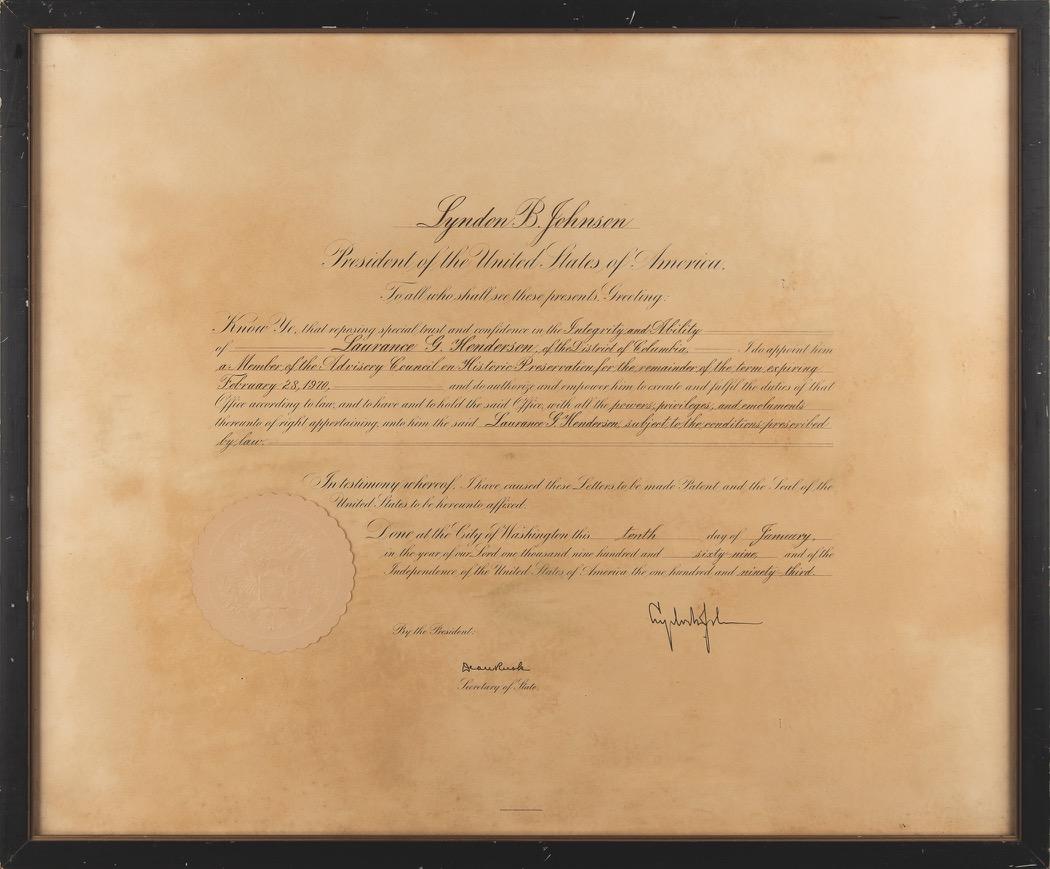 Lyndon B. Johnson
President of the United States of America.
To all who shall see these presents, Greeting:
Know Ye, that reposing special trust and confidence in the Integrity and Ability
of Laurance G. Henderson, of the District of Columbia, I do appoint him
a Member of the Advisory Council on Historic Preservation for the remainder of the term expiring
February 28, 1970, and do authorize and empower him to execute and fulfil the duties of that
Office according to law, and to have and to hold the said Office, with all the powers, privileges, and emoluments
thereunto of right appertaining, unto him the said Laurance G. Henderson, subject to the conditions prescribed
by law.
In testimony whereof, I have caused these Letters to be made Patent and the Seal of the
United States to be hereunto affixed.
Done at the City of Washington this tenth day of January,
in the year of our Lord one thousand nine hundred and sixty-nine, and of the
Independence of the United States of America the one hundred and ninety-third.
By the President:
Dean Rusk
Secretary of State.